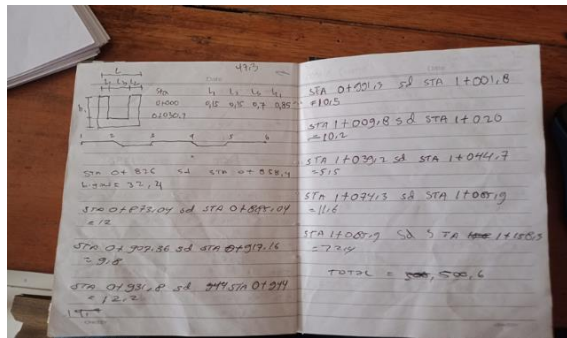 47,3
L
L1 L2 L1
h
Sta L1 L1 L2 L1
0+000 0,15 0,15 0,7 0,85
0+030,7
1 2 3 4 5 6
STA 0+826 sd STA 0+858,4
= 32,4
STA 0+873,04 sd STA 0+885,04
= 12
STA 0+907,36 sd STA 0+917,16
= 9,8
STA 0+931,8 sd 944 STA 0+944
= 12,2
STA 0+991,3 sd STA 1+001,8
= 10,5
STA 1+009,8 sd STA 1+020
= 10,2
STA 1+039,2 sd STA 1+044,7
= 5,5
STA 1+074,3 sd STA 1+085,9
= 11,6
STA 1+085,9 sd STA
TOTAL = 500,6